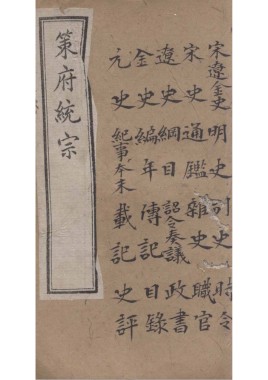 宋遼金史 明史 別史 時令
宋史 通鑑 雜史 職官
遼史 綱目 詔令奏議 政書
金史 編年 傳記 目錄
元史 紀事本末 載記 史評
策府統宗